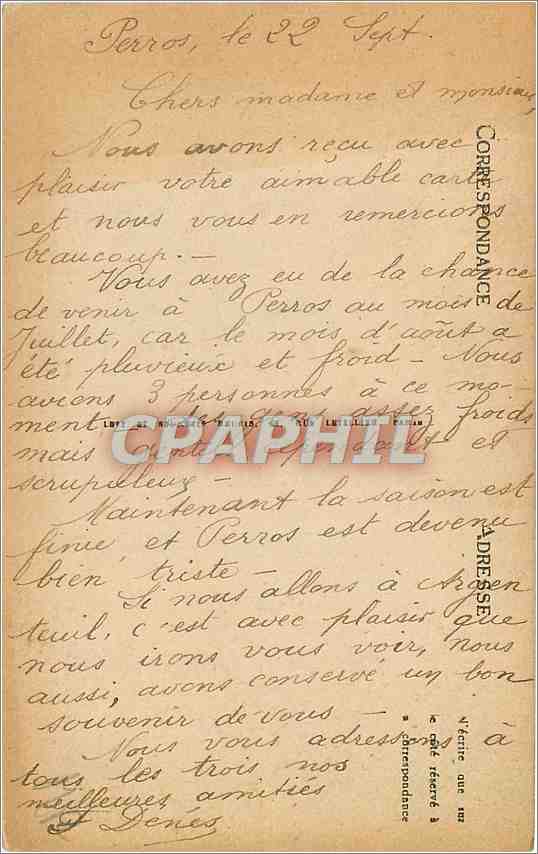 Perros, le 22 Sept.
Chers madame et monsieur,
Nous avons reçu avec
plaisir votre aimable carte
et nous vous en remercions
beaucoup. —
Vous avez eu de la chance
de venir à Perros au mois de
Juillet, car le mois d'août a
été pluvieux et froid — Nous
avions 3 personnes à ce mo-
ment gens assez froids
mais et
scrupuleux —
Maintenant la saison est
finie, et Perros est devenu
bien triste —
Si nous allons à Argen
teuil, c'est avec plaisir que
nous irons vous voir, nous
aussi, avons conservé un bon
souvenir de vous —
Nous vous adressons à
tous les trois nos
meilleures amitiés
Denes
CORRESPONDANCE
ADRESSE
N'écrire que sur
le côté réservé à
la correspondance
CPAPHIL